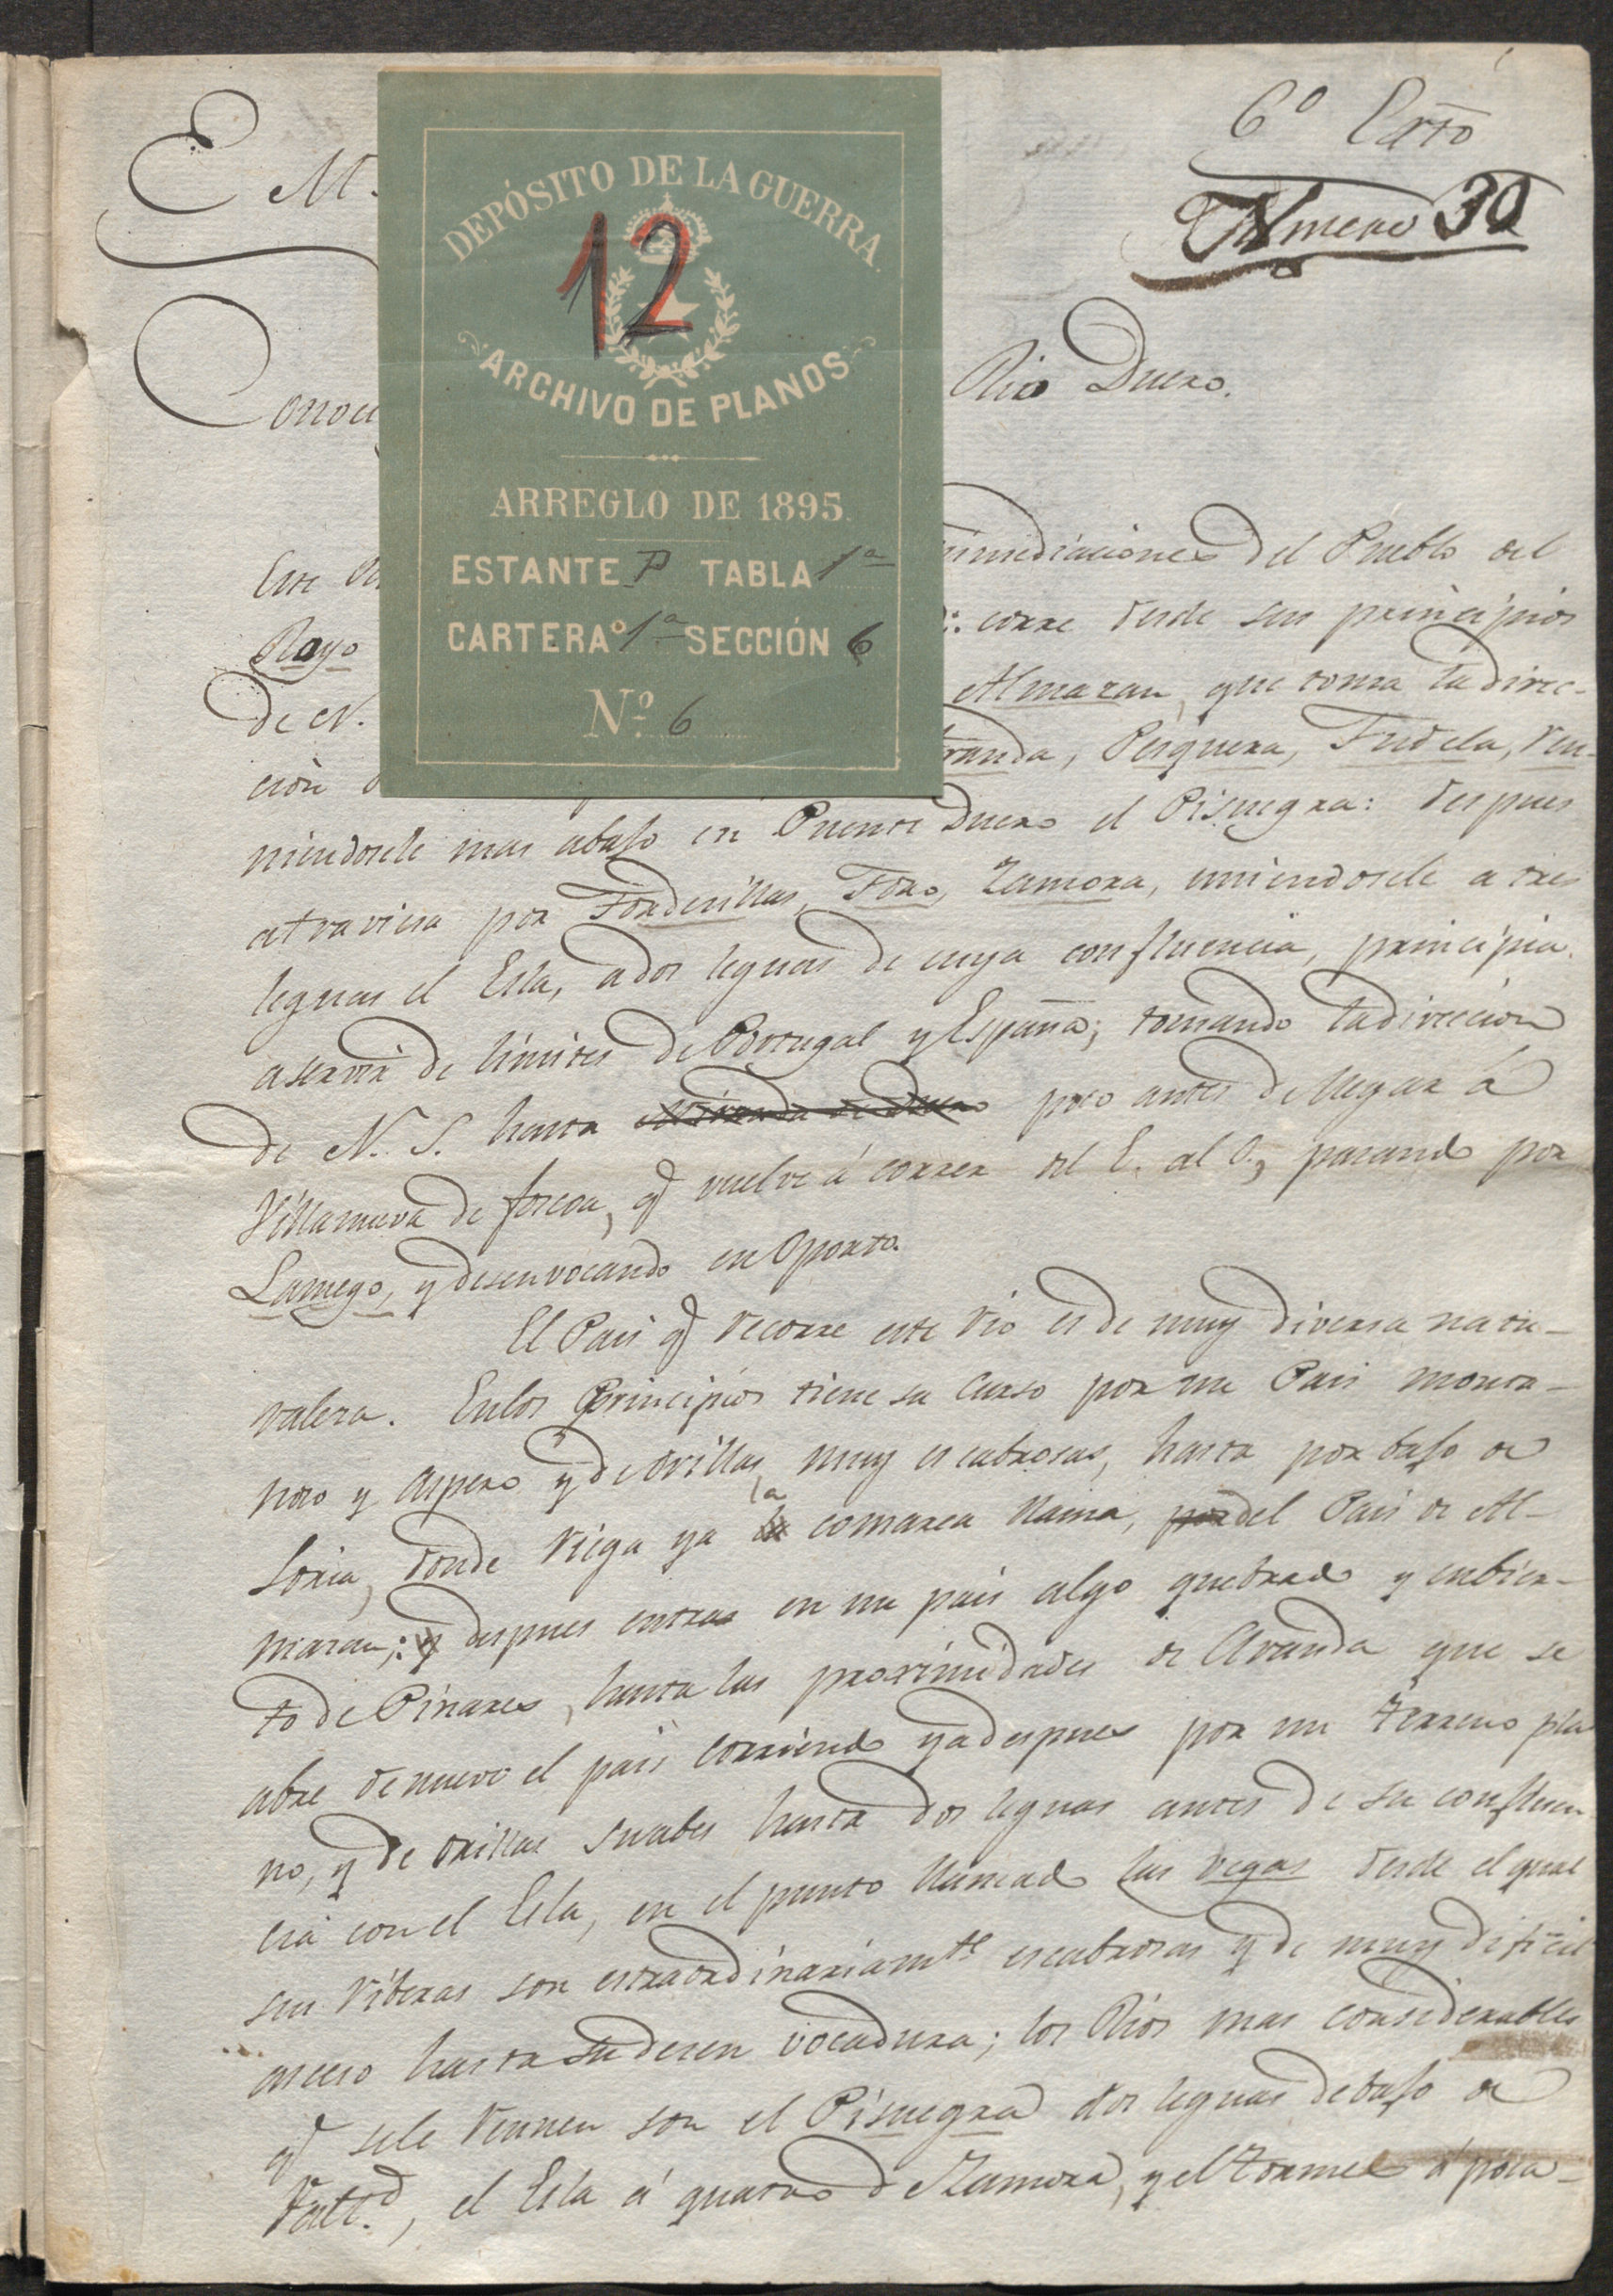 6º Exto
E. M.
Numero 30
DEPÓSITO DE LA GUERRA.
12
ARCHIVO DE PLANOS
ARREGLO DE 1895.
ESTANTE P TABLA 1ª
CARTERA 1ª SECCIÓN 6
Nº 6
Rio Duero.
Este inmediaciones del Pueblo del
Royo corre desde sus principios
de N. Almazan, que toma la direc-
ción Peiquera, Tudela, reu-
niendosele mas abajo en Puente Duero el Pisuegra: despues
atraviesa por Tordesillas, Toro, Zamora, uniendosele a tres
leguas el Esla, a dos leguas de cuya confluencia, principia
a servir de limites de Portugal y España; tomando la direccion
de N. S. hasta Miranda de Duero poco antes de llegar á
Villanueva de foscoa, q.e vuelve á correr del E. al O., pasando por
Lamego, y desenvocando en Oporto.
El Pais q.e recorre este rio es de muy diversa natu-
raleza. En los Principios tiene su Curso por un Pais monta-
ñoso y aspero y de orillas muy escabrosas, hasta por bajo de
Soria, donde riega ya la comarca llana, por del Pais de Al-
mazan; y despues entra en un pais algo quebrado y cubier-
to de Pinares, hasta las proximidades de Aranda que se
abre de nuevo el pais corriendo ya despues por un terreno pla
no, y de orillas suabes hasta dos leguas antes de su confluen
cia con el Esla, en el punto llamado las vegas desde el qual
sus riberas son estraordinariam.te escabrosas y de muy dificil
acceso hasta su desen vocadura; los Rios mas considerables
q.e se le reunen son el Pisuegra dos leguas debajo de
Vall.d, el Esla á quatro de Zamora, y el Tormes á poca-